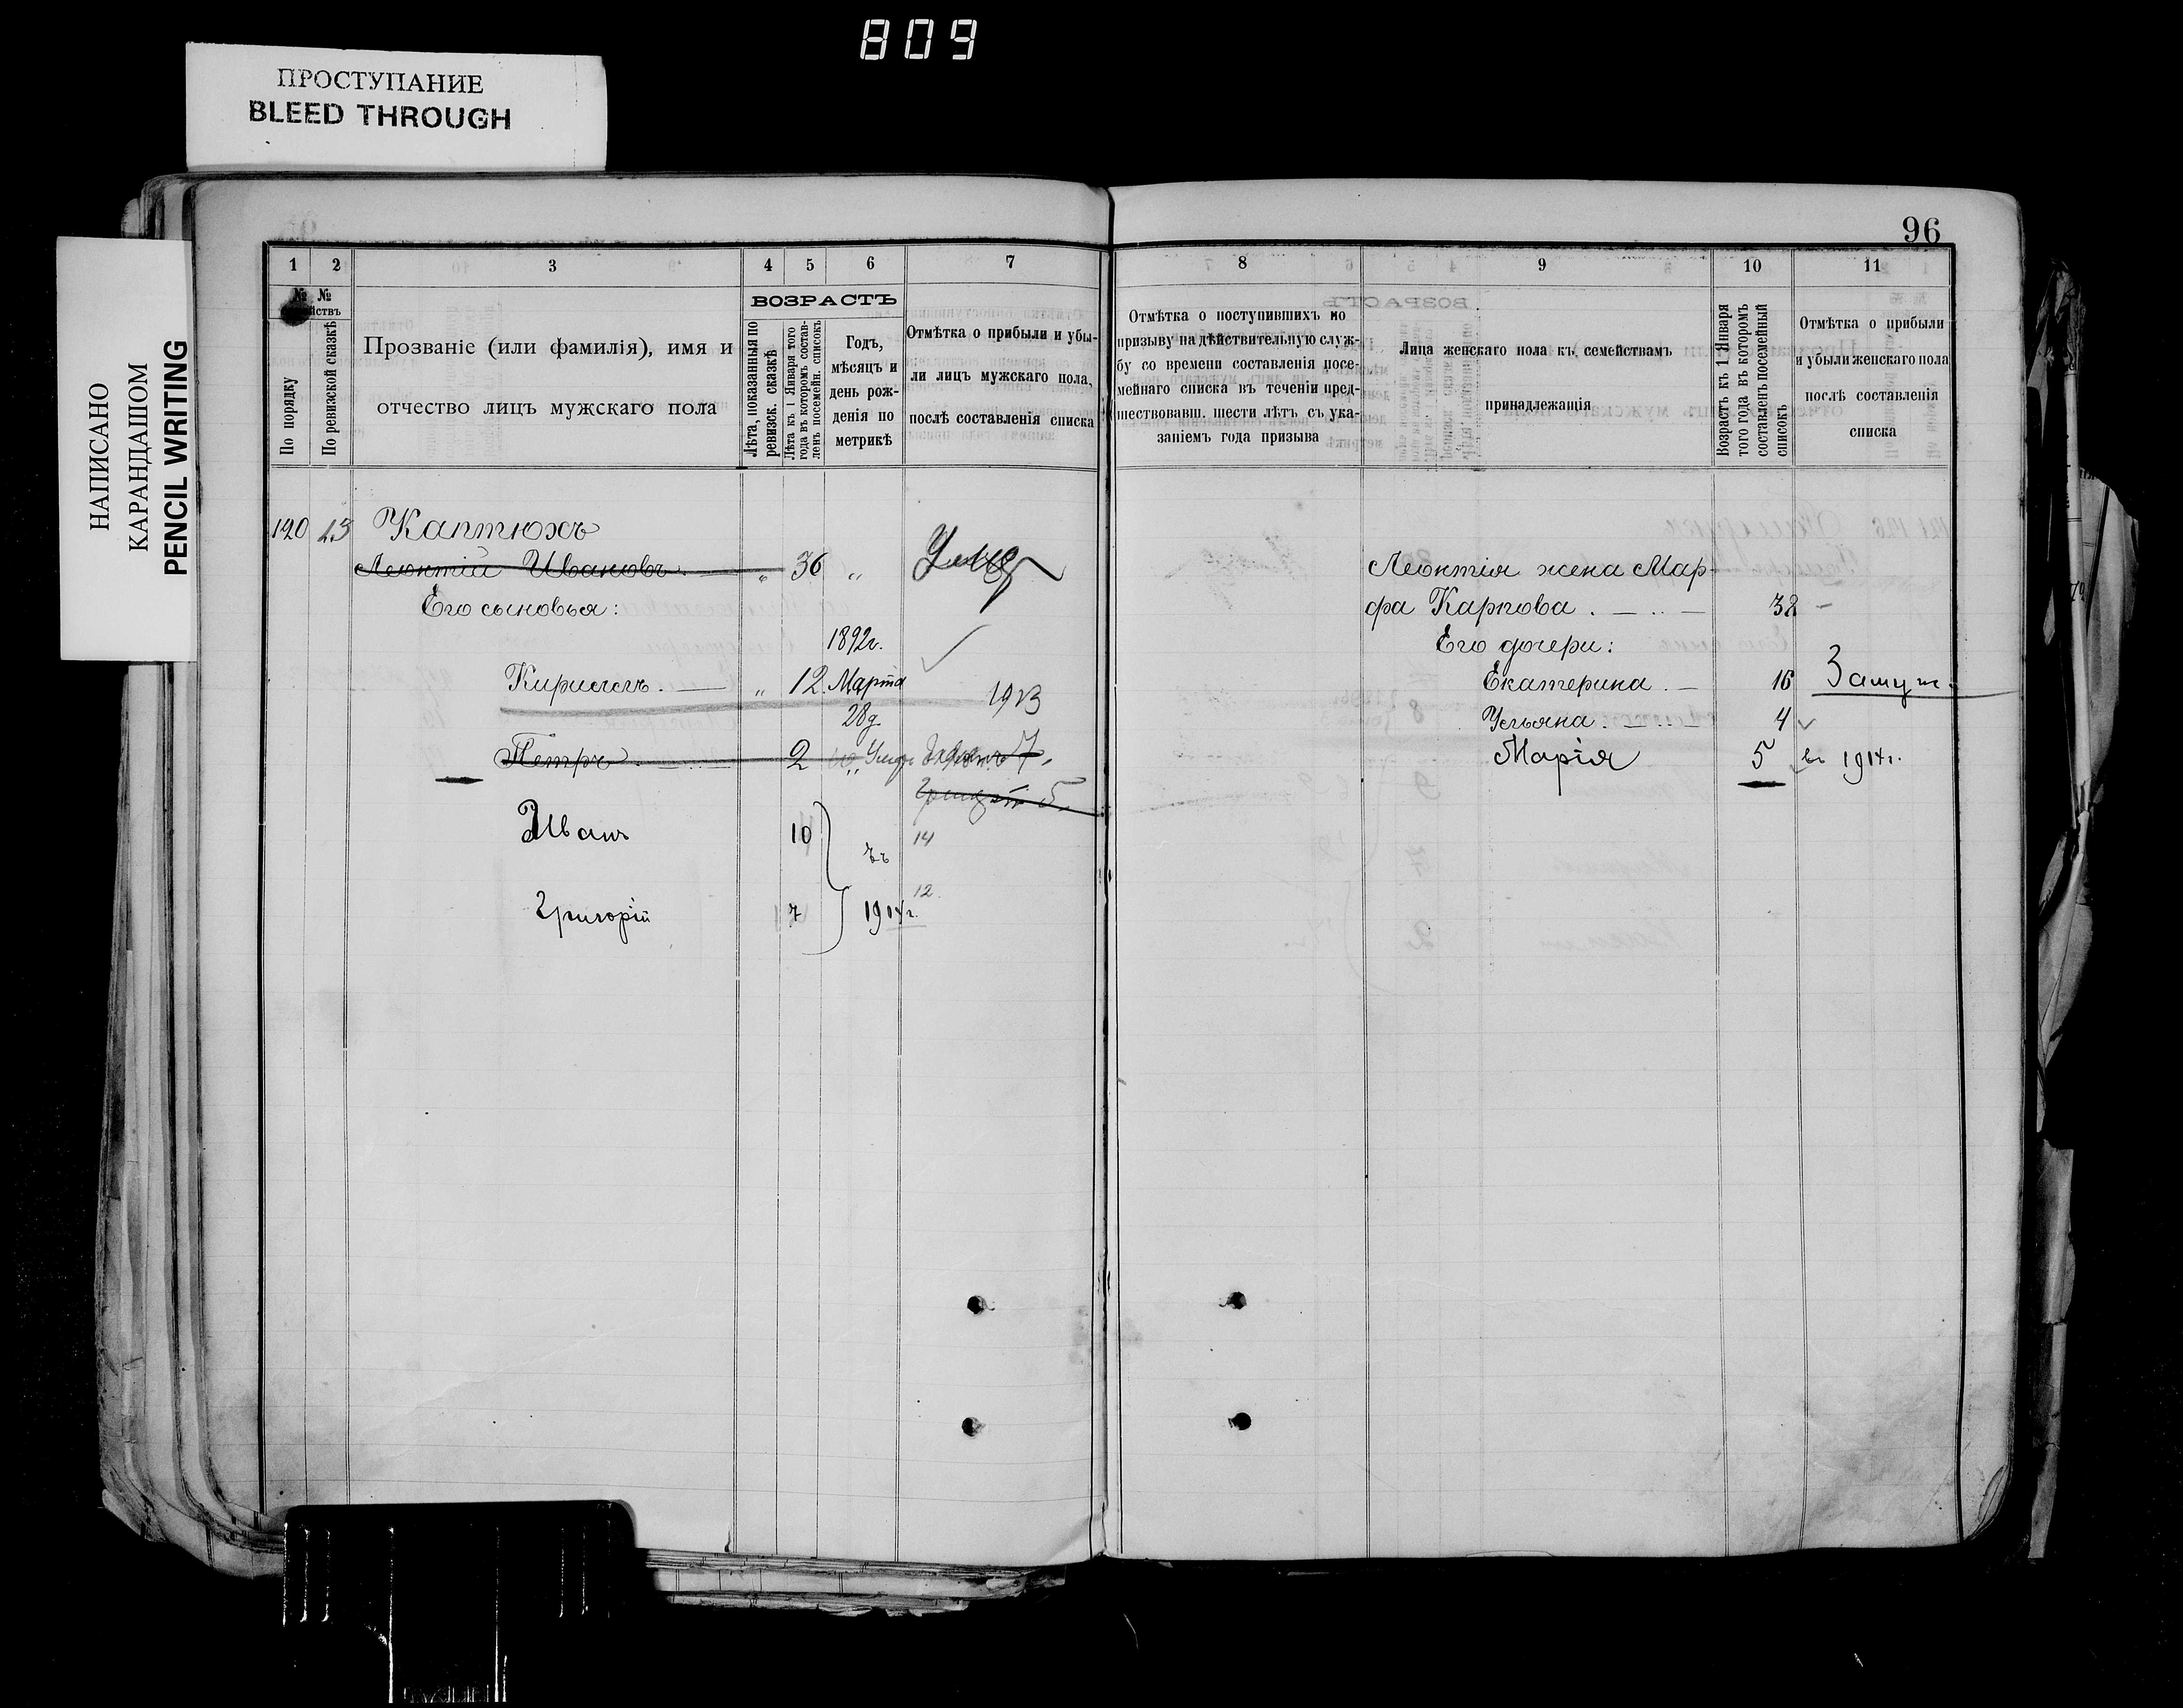 809
ПРОСТУПАНИЕ
BLEED THROUGH
НАПИСАНО
КАРАНДАШОМ
PENCIL WRITING
96
1 2 3 4 5 6 7 8 9 10 11
№ №
По порядку
По ревизской сказкѣ
Прозваніе (или фамилія), имя и
отчество лицъ мужскаго пола
ВОЗРАСТЪ
Лѣта, показанныя по
ревизск. сказкѣ
Лѣта къ 1 Января того
года въ которомъ состав-
ленъ посемейн. списокъ
Годъ,
мѣсяцъ и
день рож-
денія по
метрикѣ
Отмѣтка о прибыли и убы-
ли лицъ мужскаго пола,
послѣ составленія списка
Отмѣтка о поступившихъ по
призыву на дѣйствительную служ-
бу со времени составленія посе-
мейнаго списка въ теченіи пред-
шествовавш. шести лѣтъ съ ука-
заніемъ года призыва
Лица женскаго пола къ семействамъ
принадлежащія
Возрастъ къ 1 Января
того года въ которомъ
составленъ посемейный
списокъ
Отмѣтка о прибыли
и убыли женскаго пола
послѣ составленія
списка
120 23 Каптюхъ
Леонтій Ивановъ. — „ 36 „
Его сыновья:
1892г.
Кириллъ. — „ 12. Марта
28д.
1913
Петръ. — 2
Иванъ 10 14
въ
Григорій 7 1914г. 12
Леонтія жена Мар-
фа Карпова. — 38 —
Его дочери:
Екатерина. — 16 Замуж.
Ульяна. — 4
Марія 5 въ 1914г.